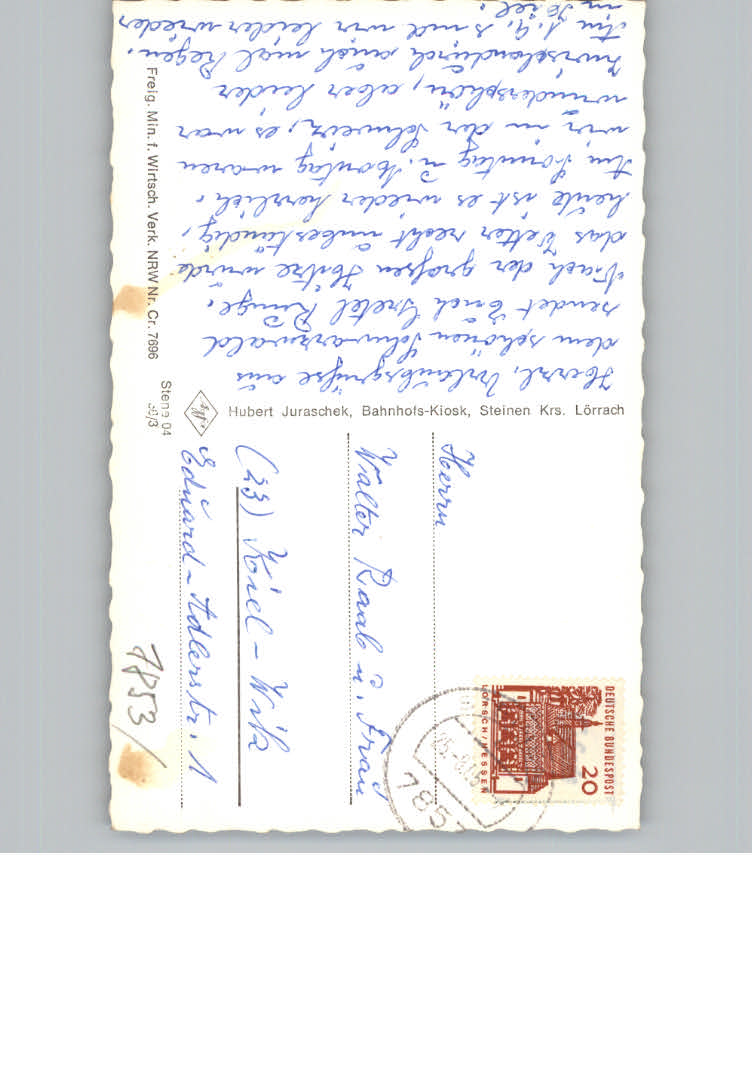 Herzl. Urlaubsgrüße aus
dem schönen Schwarzwald
sendet Euch Gretel Runge.
Nach der großen Hitze wurde
das Wetter recht unbeständig,
heute ist es wieder herrlich.
Am Sonntag u. Montag waren
wir in der Schweiz, es war
wunderschön, aber leider
zwischendurch auch mal Regen.
Am 1.9. sind wir leider wieder
in Kiel.
Hubert Juraschek, Bahnhofs-Kiosk, Steinen Krs. Lörrach
Freig. Min. f. Wirtsch. Verk. NRW Nr. Cr. 7696
Stene 04
36/3
Herrn
Walter Raab u. Frau
(23) Kiel - Wik
Eduard-Adlerstr. 1
7853/
DEUTSCHE BUNDESPOST
20
LORSCH/HESSEN
785